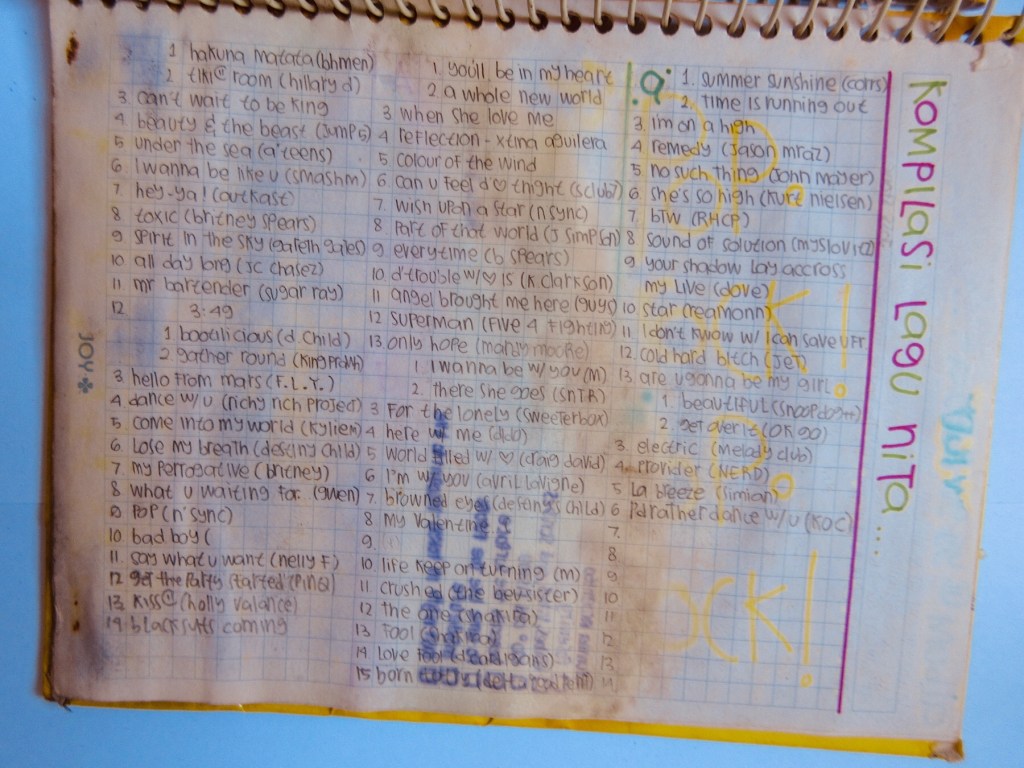 KOMPILASI LAGU NITA...
1 hakuna matata (bhmen)
2 tiki@ room (hillary d)
3. can't wait to be king
4 beauty & the beast (jump 5)
5 under the sea (a'teens)
6 I wanna be like u (smashm)
7 hey-ya! (outkast)
8 toxic (britney spears)
9 spirit in the sky (gareth gates)
10 all day long (jc chasez)
11 mr bartender (sugar ray)
12 3:49
1 bootilicious (d child)
2 gather round
3 hello from mars (F.L.Y.)
4 dance w/ u (richy rich project)
5 come into my world (kyliem)
6 Lose my breath (destiny child)
7 my porrogative (britney)
8 what u waiting for.. (gwen)
9 POP (n'sync)
10 bad boy (
11. say what u want (nelly F)
12 get the party started (pinq)
13 Kiss@ (holly valance)
14 black suits coming
1. you'll be in my heart
2. a whole new world
3 when she love me
4 reflection - xtina aguilera
5 colour of the wind
6 can u feel d ♡ tnight (sclub7)
7. wish upon a star (n sync)
8 Part of that world (J simpson)
9 everytime (b spears)
10 d'trouble w/ ♡ is (k clarkson)
11 angel brought me here (guys)
12 superman (FIVE 4 Fighting)
13 only hope (mandy moore)
1. I wanna be w/ you (M)
2. there she goes (SNTR)
3 For the lonely (sweeterbox)
4 here w/ me (dido)
5 world filled w/ ♡ (craig david)
6 I'm w/ you (avril lavigne)
7. browned eyes (destiny's child)
8 my valentine
9.
10 life keep on turning (m)
11 crushed (the beu sister)
12 the one (shakira)
13 Fool (shakira)
14 Love Fool (d cardigans)
15 born
Q:
1. summer sunshine (corrs)
2. time is running out
3. i'm on a high
4 remedy (Jason mraz)
5 no such thing (John mayer)
6 she's so high (Kurt nielsen)
7. BTW (RHCP)
8 sound of solution (myslovitz)
9 your shadow lay accross
my live (dove)
10 star (reamonn)
11 I don't know w/ I can save u Fr.
12. cold hard bitch (Jet)
13 are u gonna be my girl.
1. beautiful (snoop dogg)
2. get over it (OK GO)
3 electric (melody club)
4. Provider (NERD)
5 La breeze (simian)
6 I'd rather dance w/ u (KOC)
7.
8
9
10
11
12
13.
14
JOY